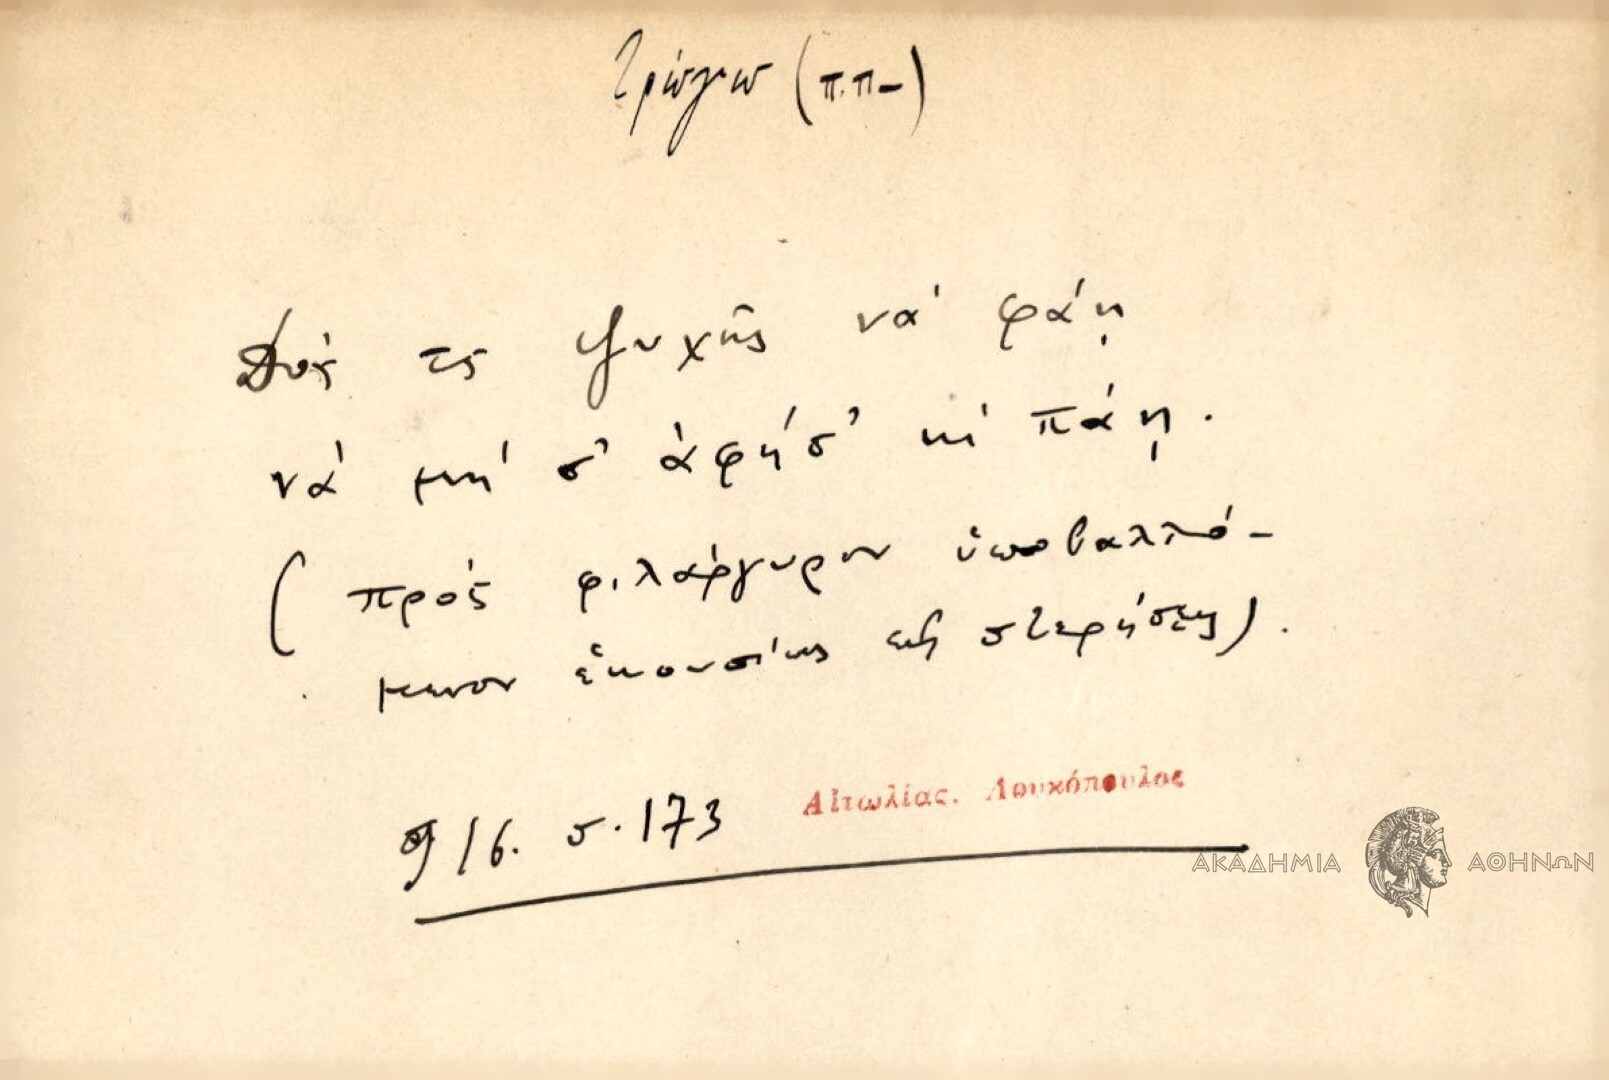 τρώγω (π.π-)
Δὸς τς ψυχῆς νὰ φάῃ
νὰ μὴ σ' ἀφήσ' κὶ πάῃ.
(πρὸς φιλάργυρον ὑποβαλλό-
μενον ἑκουσίως εἰς στερήσεις).
916. σ. 173
Αἰτωλίας. Λουκόπουλος
ΑΚΑΔΗΜΙΑ ΑΘΗΝΩΝ